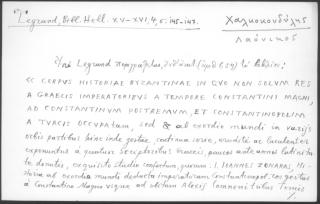 Legrand, Bibl. Hell. XV-XVI, 4, σ. 145-147.
Χαλκοκονδύλης
Λαόνικος
Ὑπὸ Legrand περιγράφεται, τὸ βιβλίον:
« CORPUS HISTORIAE BYZANTINAE IN QUO NON SOLUM RES
A GRAECIS IMPERATORIBUS A TEMPORE CONSTANTINI MAGNI,
AD CONSTANTINUM POSTREMUM, ET CONSTANTINOPOLIM
A TURCIS OCCUPATAM, sed & ab exordio mundi in varijs
orbis partibus hinc inde gestae, continua serie, erudite ac luculenter
exponuntur a quatuor Scriptoribus Graecis, paucos ante annos latinita
te donatis, exquisito studio confectum, quorum. I. IOANNES ZONARAS, Hi-
storia ab exordio mundi deducta imperatorum Constantinopol., res gestas
a Constantino Magno usque ad obitum Alexii Comneni tribus Tomis